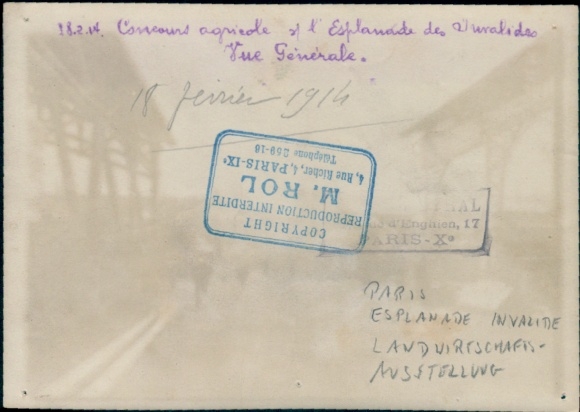 18.2.14. Concours agricole s/ l'Esplanade des Invalides
Vue Générale.
18 février 1914
COPYRIGHT
REPRODUCTION INTERDITE
M. ROL
4, Rue Richer, 4, PARIS-IXe
Téléphone 259-16
d'Enghien, 17
PARIS-Xe
PARIS
ESPLANADE INVALIDE
LANDWIRTSCHAFTS-
AUSSTELLUNG